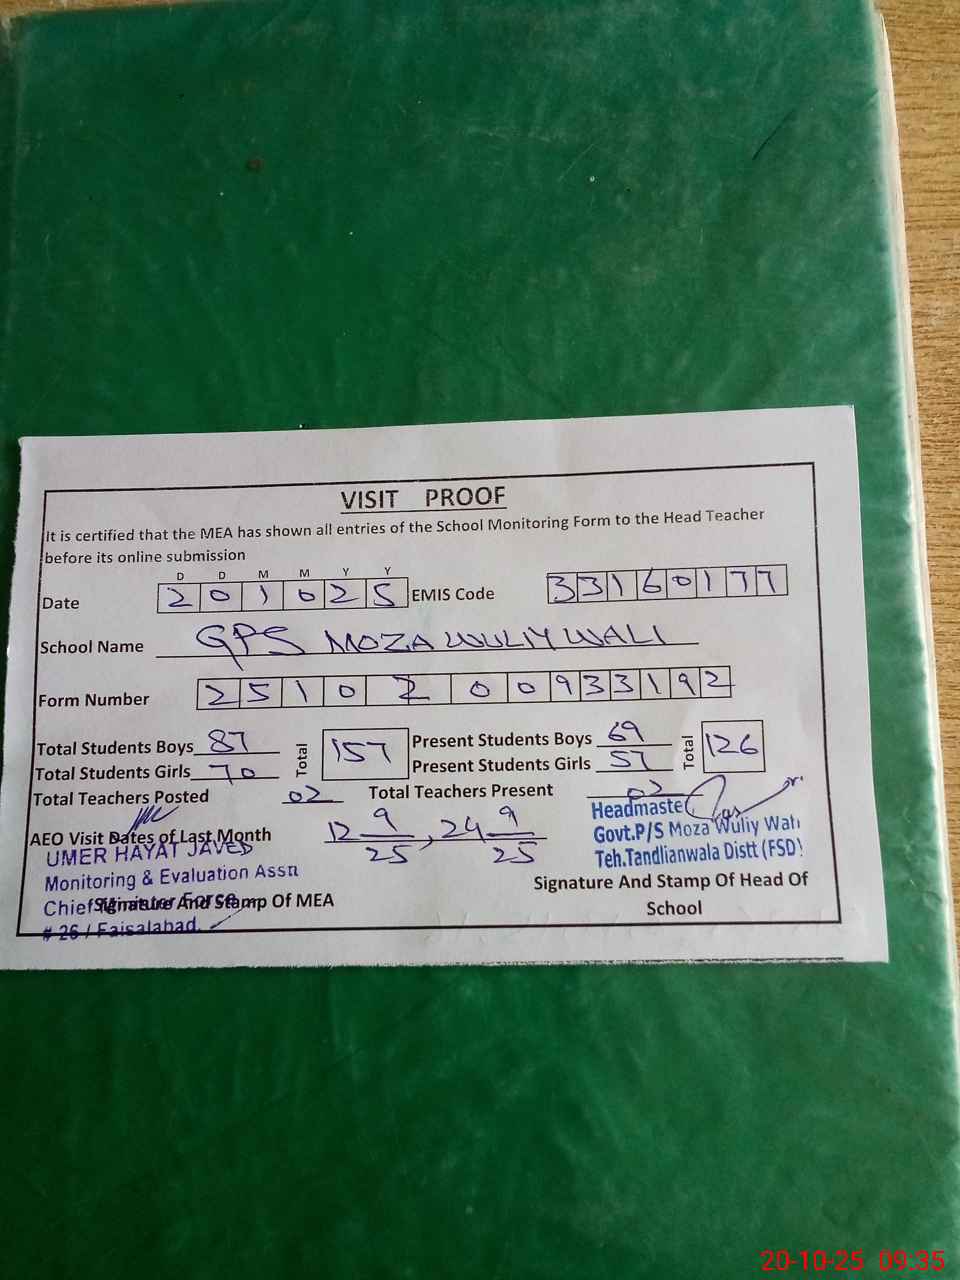 VISIT PROOF
It is certified that the MEA has shown all entries of the School Monitoring Form to the Head Teacher
before its online submission
D D M M Y Y
Date 2 0 1 0 2 5 EMIS Code 3 3 1 6 0 1 7 7
School Name GPS MOZA WULIY WALI
Form Number 2 5 1 0 2 0 0 9 3 3 1 9 2
Total Students Boys 87 Total 157 Present Students Boys 69 Total 126
Total Students Girls 70 Present Students Girls 57
Total Teachers Posted 02 Total Teachers Present 02
AEO Visit Dates of Last Month 12 9/25, 24 9/25
Headmaste
Govt.P/S Moza Wuliy Wali
Teh.Tandlianwala Distt (FSD)
UMER HAYAT JAVED
Monitoring & Evaluation Asstt
Chief Minister Force
# 26 / Faisalabad.
Signature And Stamp Of MEA
Signature And Stamp Of Head Of
School
20-10-25 09:35